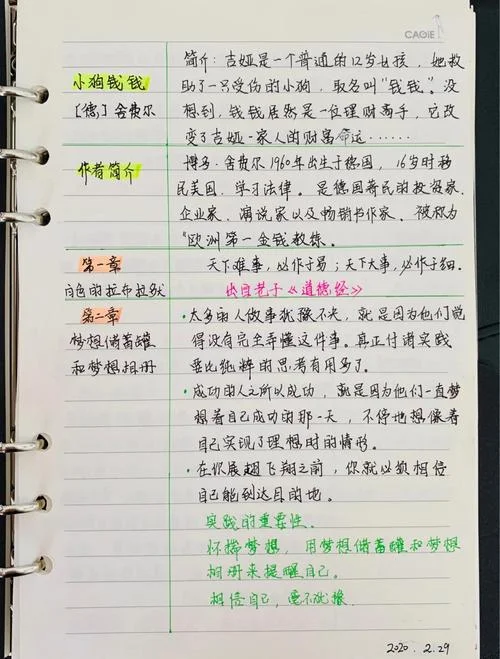 CAGIE
小狗钱钱
[德]舍费尔
简介：吉娅是一个普通的12岁女孩，她救
助了一只受伤的小狗，取名叫"钱钱"。没
想到，钱钱居然是一位理财高手，它改
变了吉娅一家人的财富命运……
作者简介
博多·舍费尔1960年出生于德国，16岁时移
民美国，学习法律。是德国著名的投资家、
企业家、演说家以及畅销书作家。被称为
"欧洲第一金钱教练。
第一章
白色的拉布拉多犬
天下难事，必作于易；天下大事，必作于细。
出自老子《道德经》
第二章
梦想储蓄罐
和梦想相册
·太多的人做事犹豫不决，就是因为他们觉
得没有完全弄懂这件事。真正付诸实践
要比纯粹的思考有用多了。
·成功的人之所以成功，就是因为他们一直梦
想着自己成功的那一天，不停地想像着
自己实现了理想时的情形。
·在你展翅飞翔之前，你就必须相信
自己能到达目的地。
实践的重要性。
怀揣梦想，用梦想储蓄罐和梦想
相册来提醒自己。
相信自己，
2020.2.29